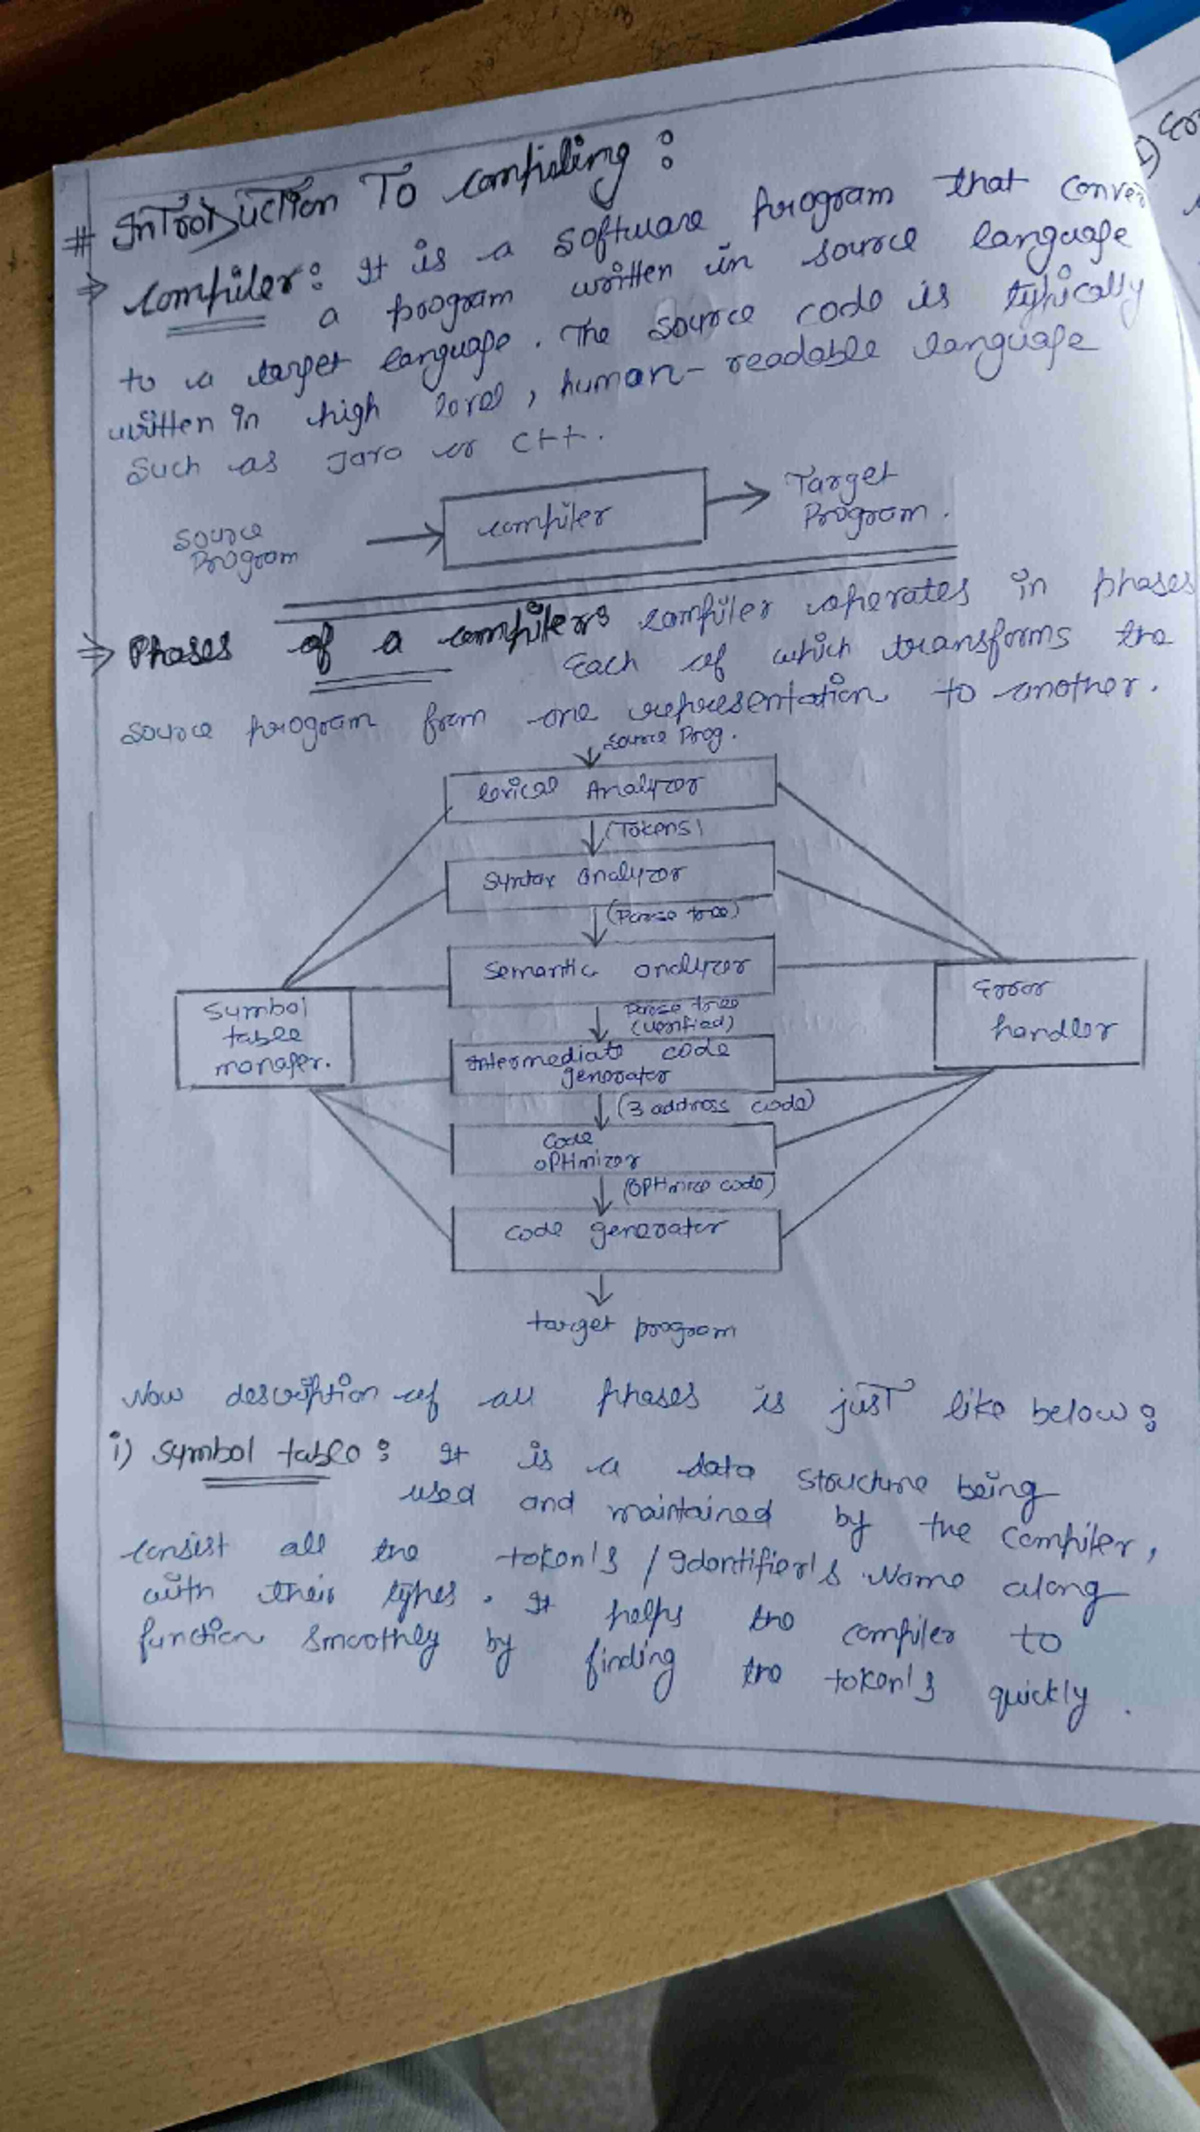 # Introduction To compiling :
⇒ Compiler : It is a software program that conver
a program written in source language
to a target language. The source code is typically
written in high level, human-readable language
such as Java or C++.
Source Program → compiler → Target Program.
⇒ Phases of a compiler : compiler operates in phases
Each of which transforms the
source program from one representation to another.
↓ source Prog.
lexical Analyzer
↓ (Tokens)
Syntax analyzer
↓ (Parse tree)
Semantic analyzer
Symbol table manager.
Error handler
↓ Parse tree (verified)
Intermediate code generator
↓ (3 address code)
Code optimizer
↓ (optimize code)
Code generator
↓
target program
Now description of all phases is just like below :
i) Symbol table : It is a data structure being
used and maintained by the compiler,
consist all the token's / Identifier's Name along
with their types. It helps the compiler to
function smoothly by finding the token's quickly.